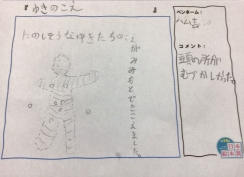 『ゆきのこえ』
たのしそうなゆきたちの
こえがみみもとできこえました。
ペンネーム：
ハム吉
コメント：
頭の所が
むずかしかった。